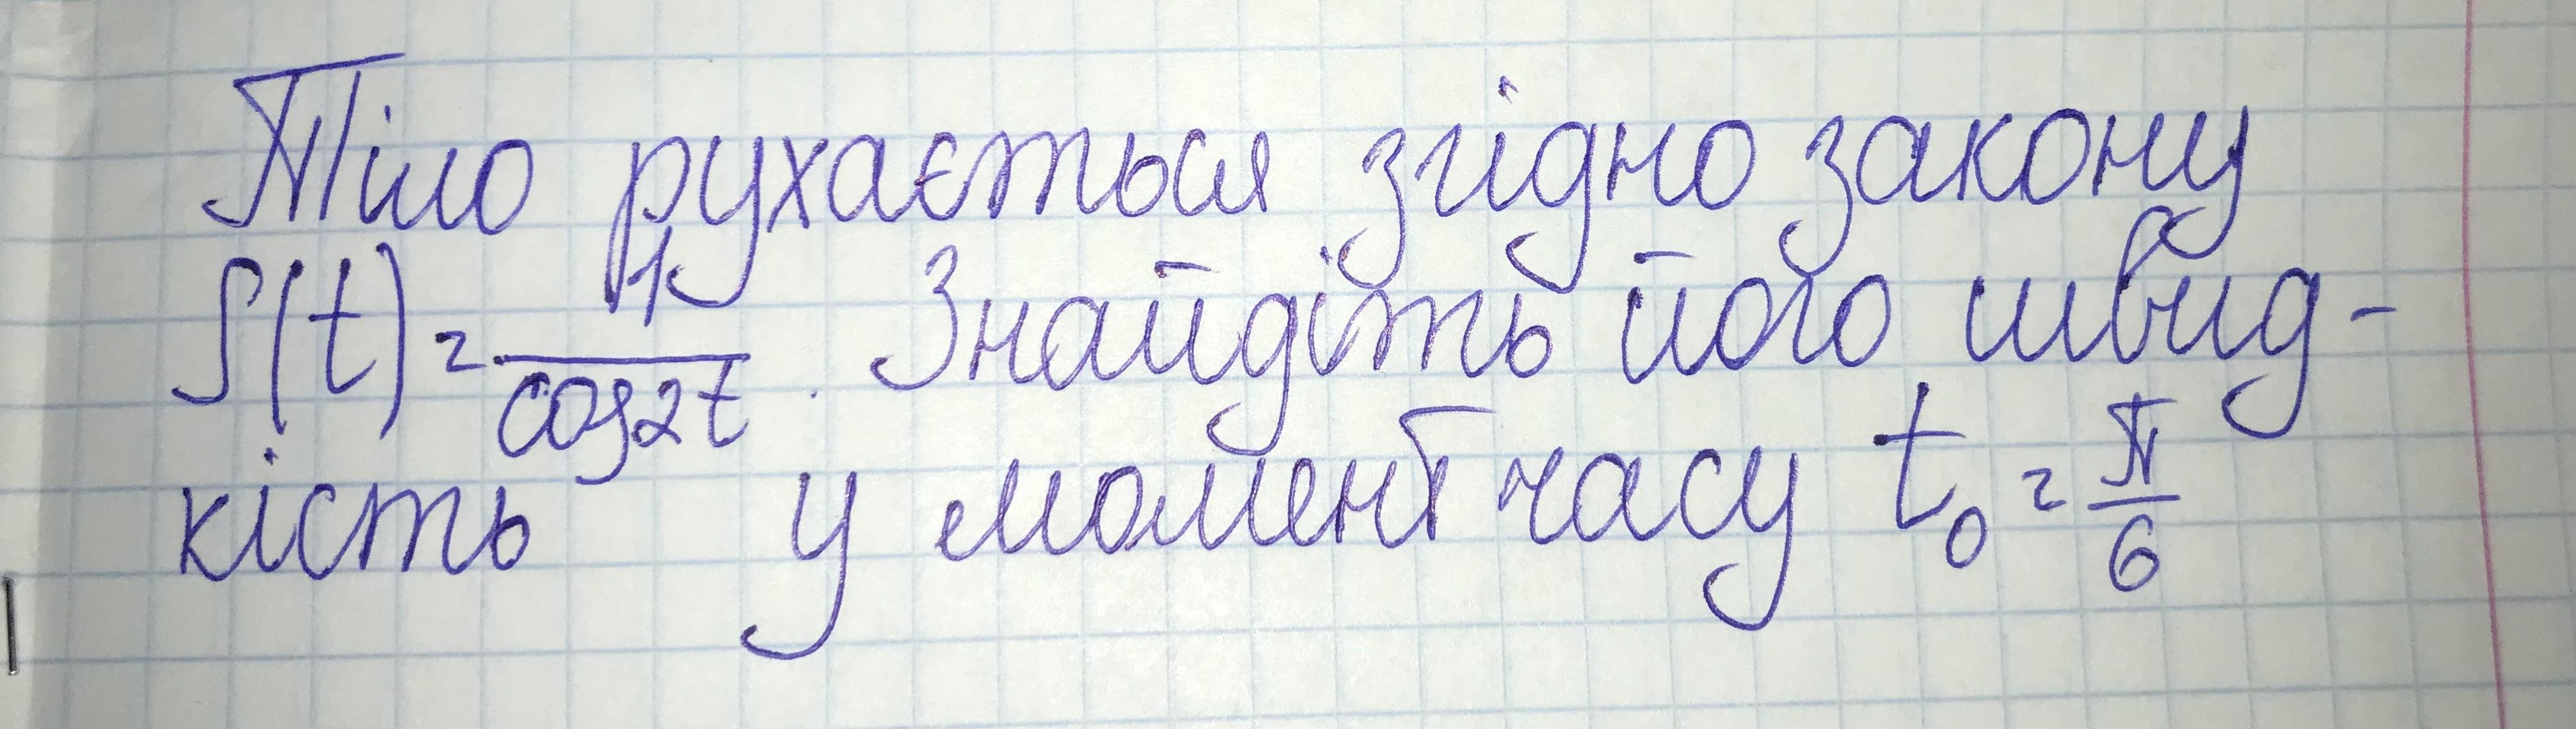 Тіло рухається згідно закону
S(t) = 1/cos2t. Знайдіть його швид-
кість у момент часу t₀ = π/6